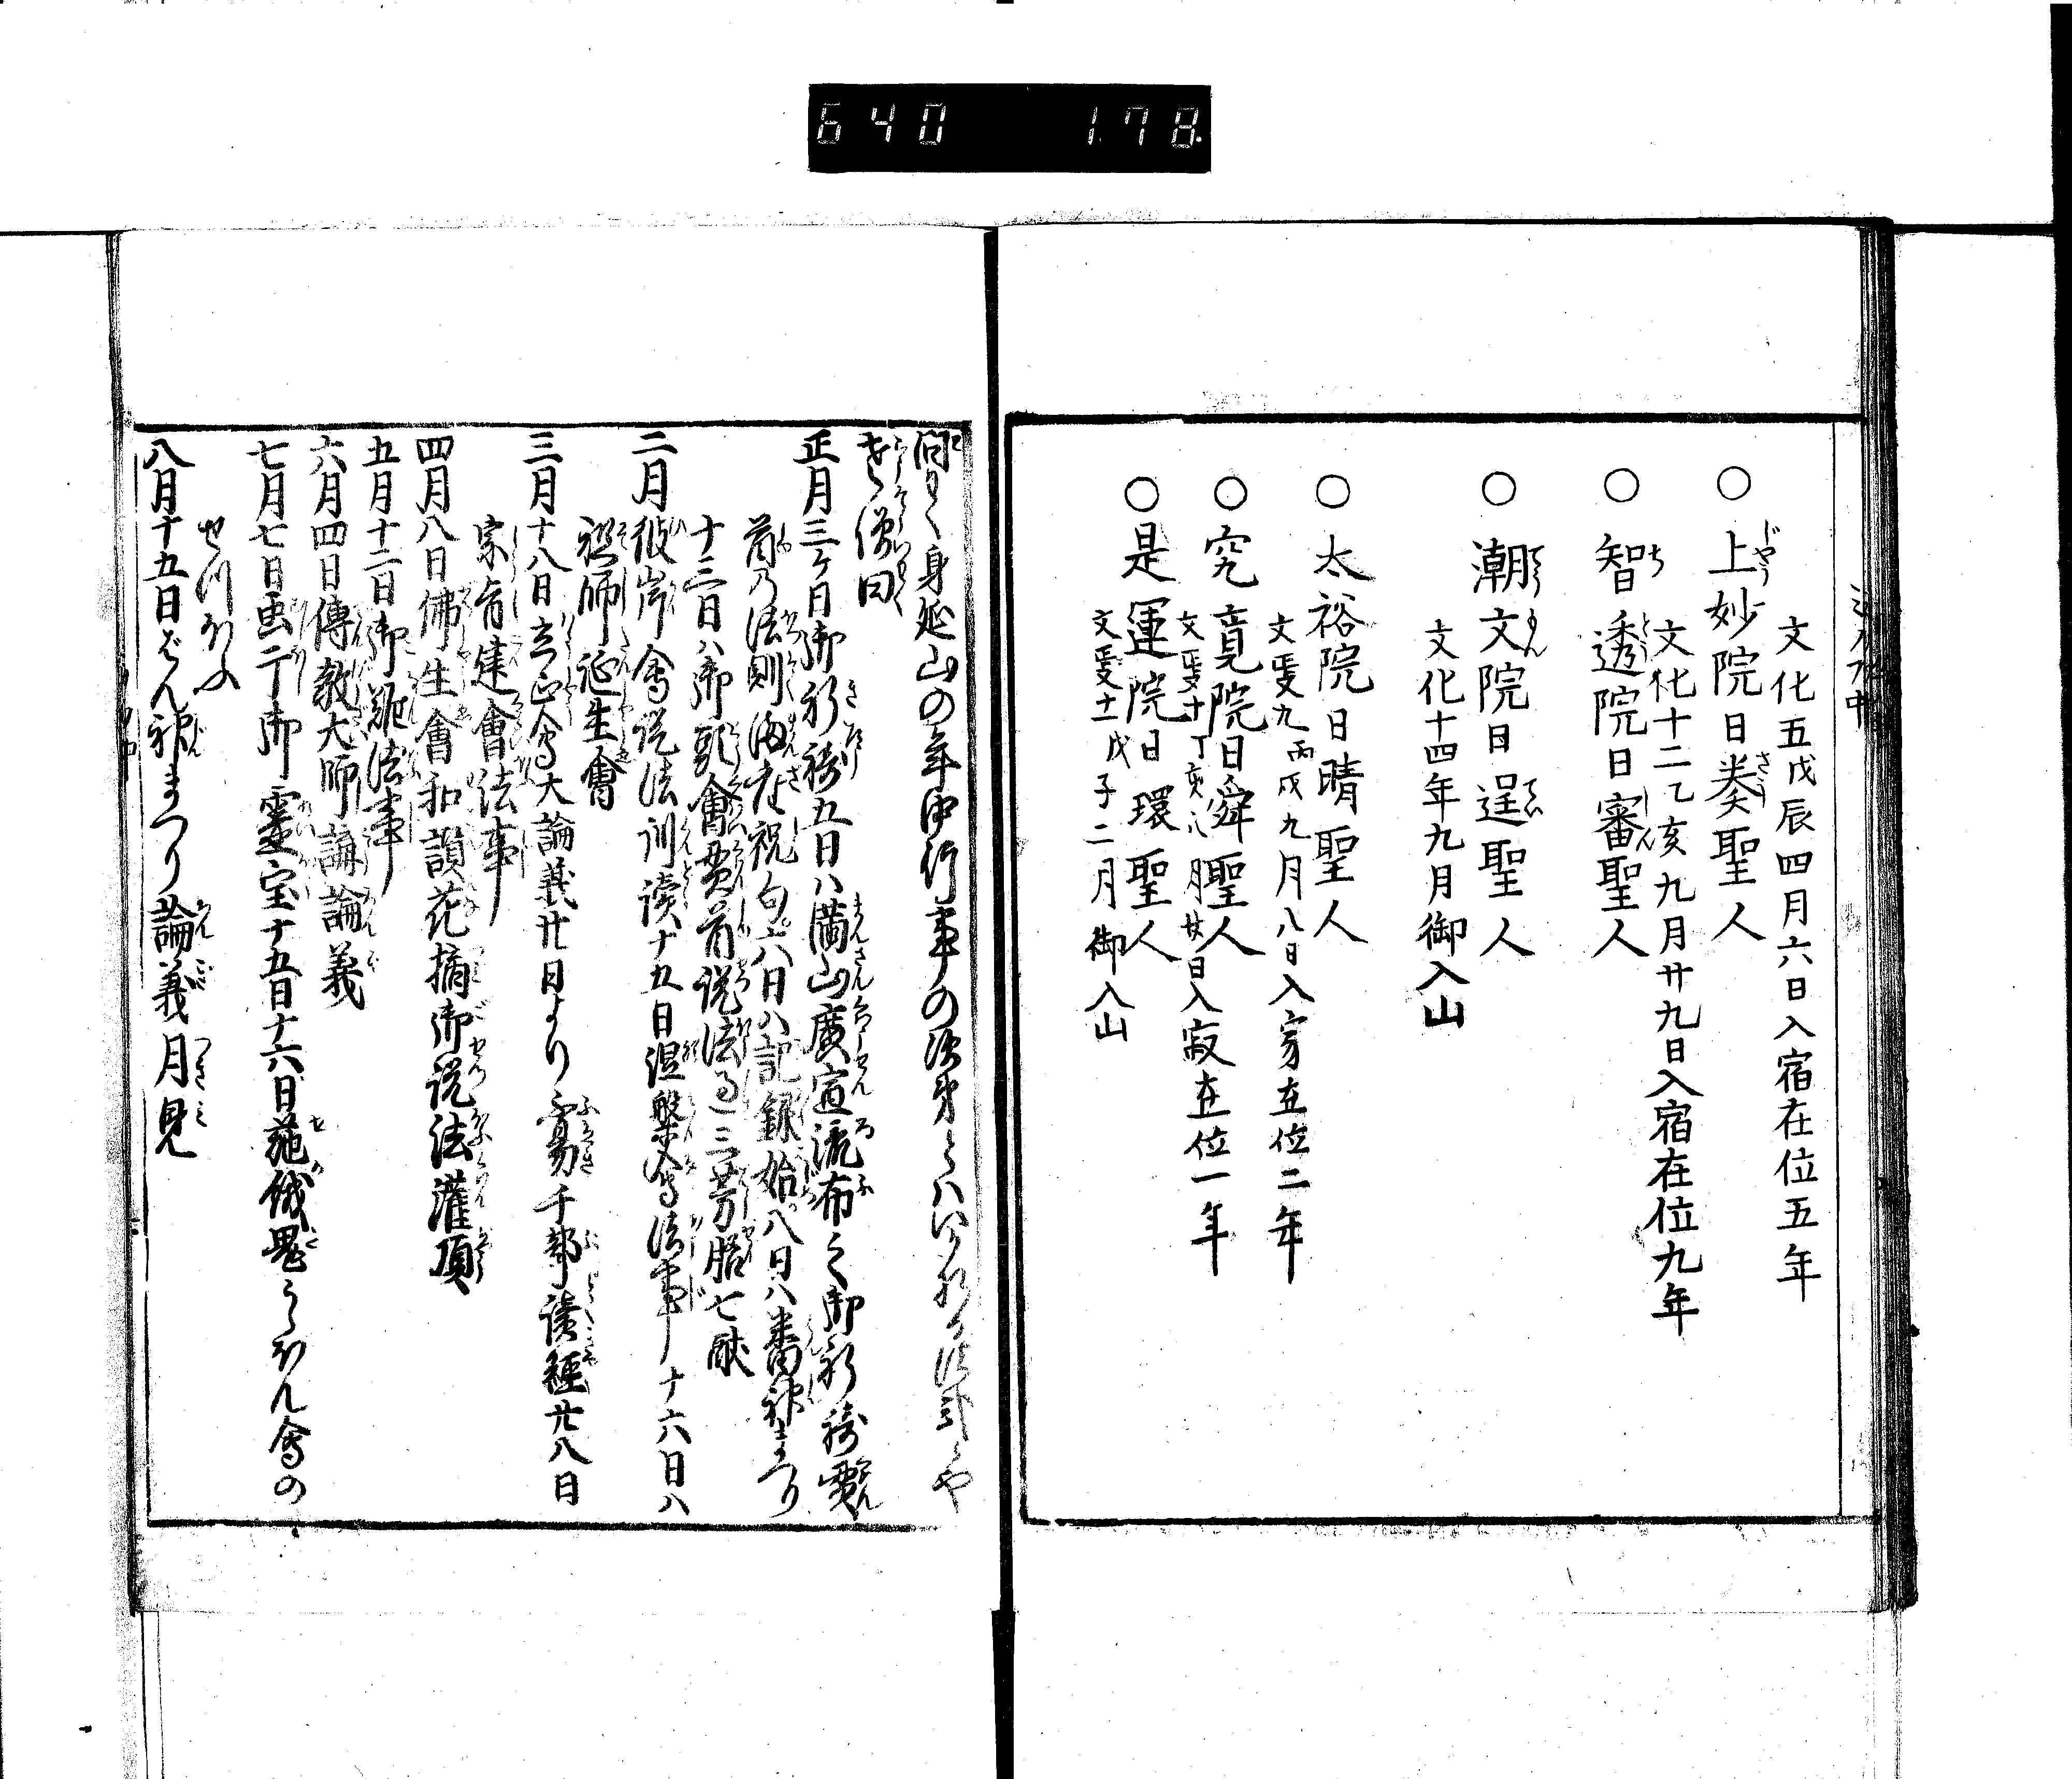 640 178
文化五戊辰四月六日入宿在位五年
○上妙院日奏聖人
文化十二乙亥九月廿九日入宿在位九年
○智透院日審聖人
○潮文院日逞聖人
文化十四年九月御入山
○太裕院日晴聖人
文政九丙戌九月八日入寂在位二年
○究竟院日舜聖人
文政十丁亥八月廿日入寂在位一年
○是運院日環聖人
文政十一戊子二月御入山
問て曰身延山の年中行事の次第は
老僧曰
正月三ケ日御祈祷五日ハ満山廣宣流布之御祈祷
首乃法則満座祝句六日ハ記録始八日ハ番神まつり
十三日ハ御頭會貫首説法
二月彼岸會説法訓読十五日涅槃會法事十六日ハ
祖師誕生會
三月十八日立正會大論義廿日より千部読経廿八日
宗旨建會法事
四月八日佛生會和讃花摘御説法灌頂
五月十二日御難法事
六月四日傳教大師講論義
七月七日虫干御霊宝十五日十六日施餓鬼うらぼん會の
せつほふ
八月十五日ばん神まつり論義月見